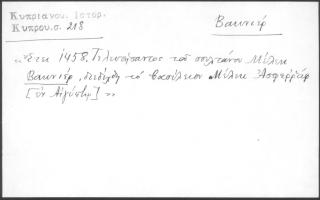 Κυπριανου. Ιστορ.
Κυπρου. σ. 218
Βακυιέρ
«ἔτει 1458. Τελευτήσαντος τοῦ σουλτάνου Μέλεκ
Βακυιέρ, διεδέχθη τὸ βασίλειον Μέλεκ Ἀσφερράφ
[ἐν Αἰγύπτῳ]»